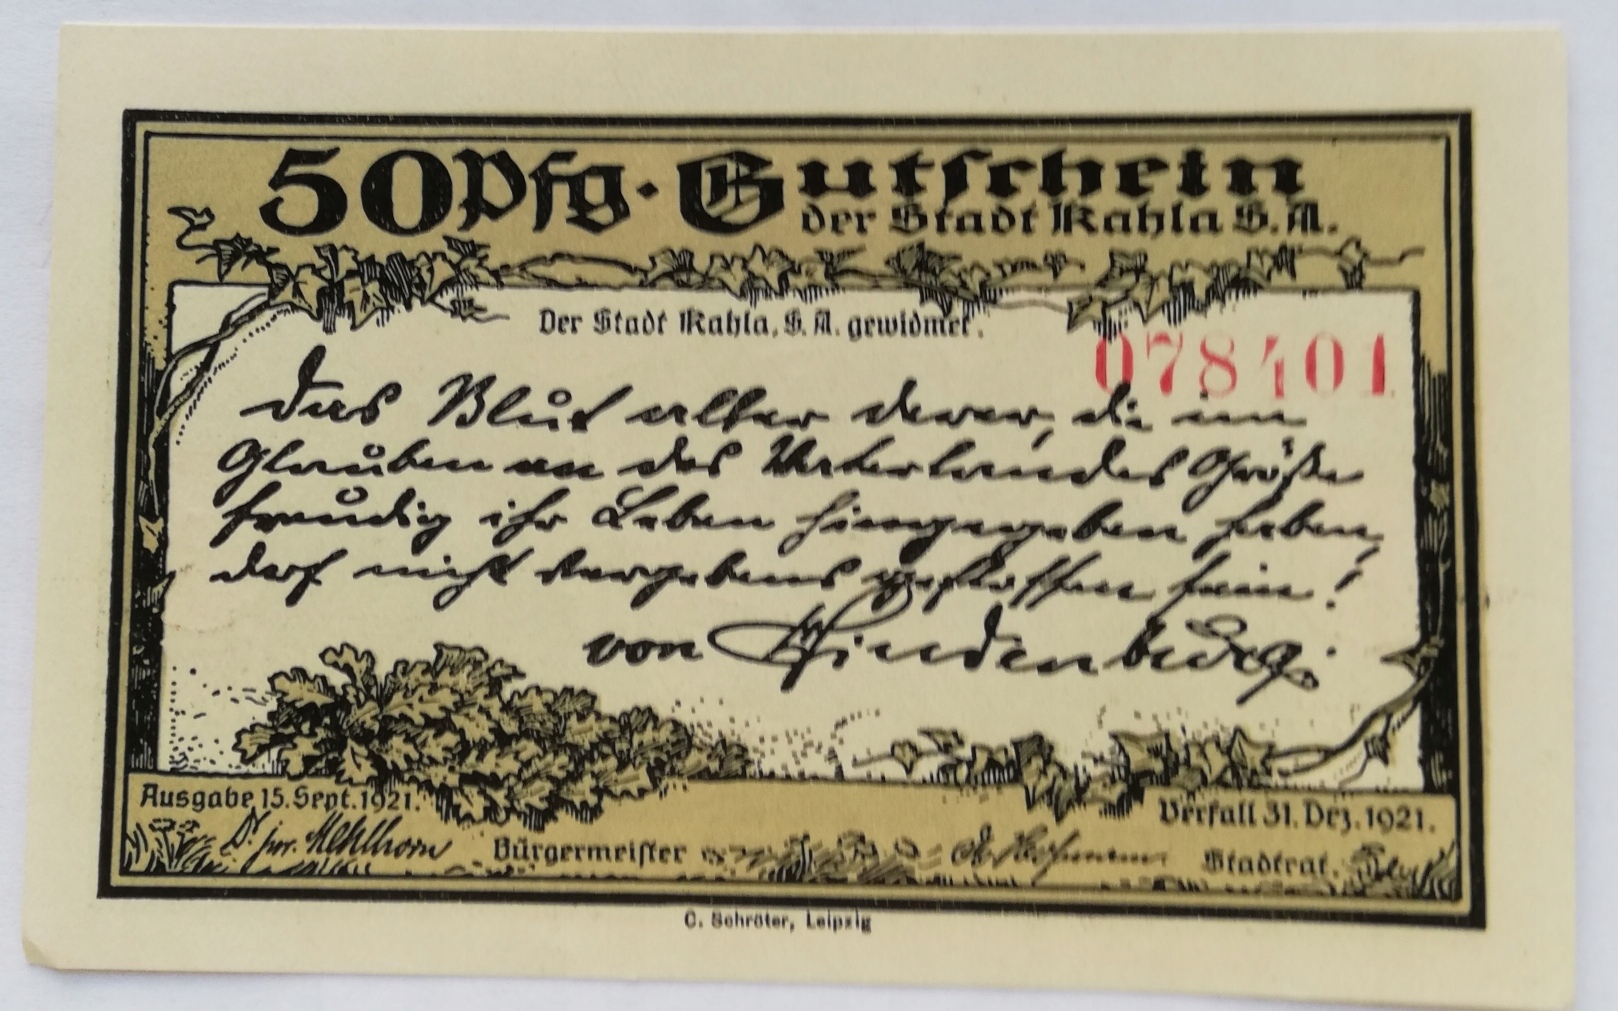 50 Pfg. Gutschein
der Stadt Kahla S.A.
Der Stadt Kahla, S.A. gewidmet.
078401
Das Blut aller derer, die im
Glauben an des Vaterlandes Größe
freudig ihr Leben hingegeben haben,
darf nicht vergebens geflossen sein!
von Hindenburg.
Ausgabe 15. Sept. 1921.
Verfall 31. Dez. 1921.
Dr jur. Mehlhorn Bürgermeister
Stadtrat.
C. Schröter, Leipzig